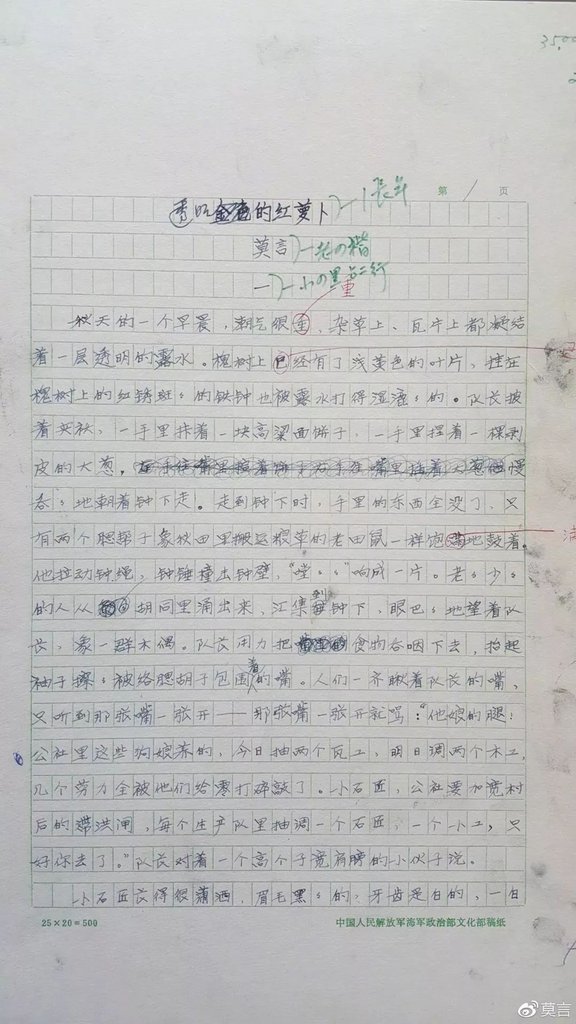 35.00
第 1 页
透明的红萝卜
莫言
一
秋天的一个早晨,潮气很重,杂草上、瓦片上都凝结
着一层透明的露水。槐树上已经有了浅黄色的叶片,挂在
槐树上的红锈斑〻的铁钟也被露水打得湿漉〻的。队长披
着夹袄,一手里拤着一块高粱面饼子,一手里捏着一棵剥
皮的大葱,慢
吞〻地朝着钟下走。走到钟下时,手里的东西全没了,只
有两个腮帮子象秋田里搬运粮草的老田鼠一样饱满地鼓着。
他拉动钟绳,钟锤撞击钟壁,"嘡〻"响成一片。老〻少〻
的人从胡同里涌出来,汇集到钟下,眼巴〻地望着队
长,象一群木偶。队长用力把食物吞咽下去,抬起
袖子擦〻被络腮胡子包围着的嘴。人们一齐瞅着队长的嘴,
只听到那张嘴一张开——那张嘴一张开就骂:"他娘的腿!
公社里这些狗娘养的,今日抽两个瓦工,明日调两个木工,
几个劳力全被他们给零打碎敲了。小石匠,公社要加宽村
后的滞洪闸,每个生产队里抽调一个石匠,一个小工,只
好你去了。"队长对着一个高个子宽肩膀的小伙子说。
小石匠长得很潇洒,眉毛黑〻的,牙齿是白的,一白
25×20=500
中国人民解放军海军政治部文化部稿纸
莫言